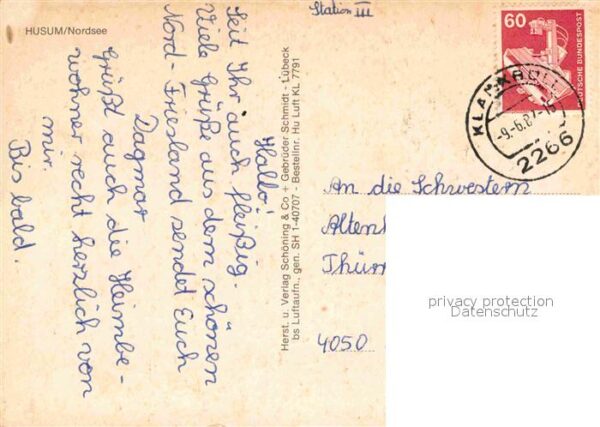 HUSUM/Nordsee
Hallo!
Seit Ihr auch fleißig.
Viele Grüße aus dem schönen
Nord-Friesland sendet Euch
Dagmar
Grüßt auch die Heimbe-
wohner recht herzlich von
mir.
Bis bald.
Herst. u. Verlag Schöning & Co + Gebrüder Schmidt - Lübeck
bs Luftaufn., gen. SH 1-40707 - Bestellnr. Hu Luft KL 7791
Station III
60
DEUTSCHE BUNDESPOST
-9.-6.82-16
2266
An die Schwestern
4050
privacy protection
Datenschutz